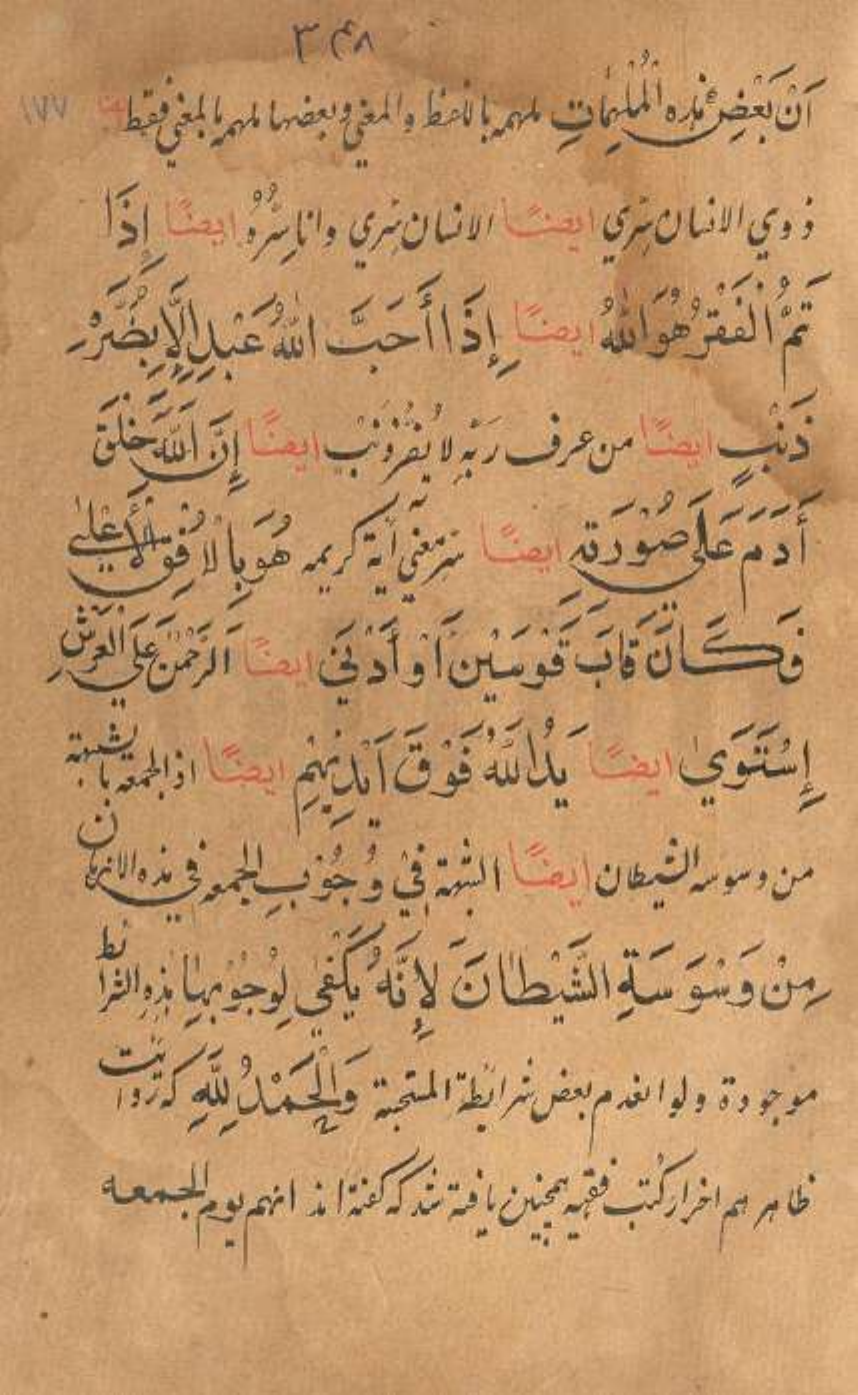 ۳۴۸
۱۷۷
اَنْ بَعْضِ هٰذه الْمُلْهِمَاتِ ملهمه باللفظ والمعني وبعضها ملهمه بالمعني فقط ايضا
الانسان سِرّي ايضًا الانسان سِرّي وانا سِرُّهُ ايضًا إِذَا
تَمَّ الْفَقْرُ هُوَ اللهُ ايضًا إِذَا أَحَبَّ اللهُ عَبْدِ الَّا يَضُرُّهْ
ذَنْبٍ ايضًا من عرف رَبّهِ لا يضُرّه ذنْبٍ ايضًا إِنَّ اللهَ خَلَقَ
أَدَمَ عَلَى صُوْرَتِهِ ايضًا سرّ معني آية كريمه هُوَ بِالْاُفُقِ الْأَعْلىٰ
فَكَانَ قَابَ قَوْسَيْنِ اَوْ أَدْنَيٰ ايضًا اَلرَّحْمٰنُ عَلَي الْعَرْشِ
إِسْتَوَيٰ ايضًا يَدُ اللهُ فَوْقَ اَيْدِيْهِمِ ايضًا الجمعة بالشبهة
من وسوسه الشيطان ايضًا الشبهة فِيْ وُجُوْبِ الجمعه في هذه الازمان
مِنْ وَسْوَسَةِ الشَّيْطَانَ لِإِنَّهُ يَكْفِي لِوُجُوْبِهَا هٰذِهِ الشرائط
موجودة ولو انعدم بعض شرائطة وَالْحَمْدُ لِلّهِ كه روايت
ظاهر هم از كتب فقهيه همچنين يافته شد كه گفته اند انهم يوم الجمعه